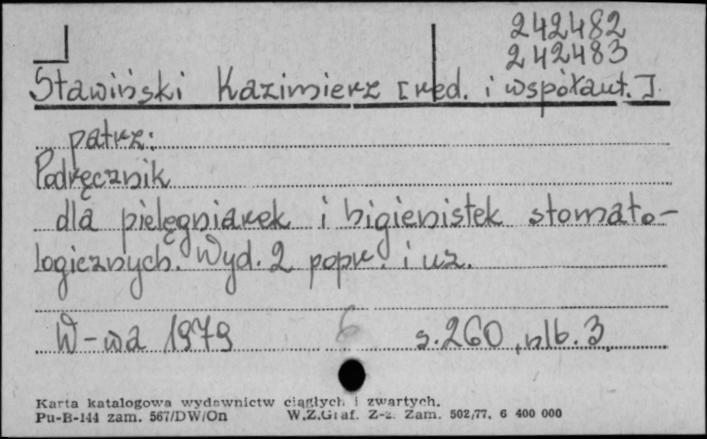 242482
242483
Stawiński Kazimierz [red. i współaut.].
patrz:
Podręcznik
dla pielęgniarek i higienistek stomato-
logicznych. Wyd. 2 popr. i uz.
W-wa 1979 6 s. 260, nlb. 3.
Karta katalogowa wydawnictw ciągłych i zwartych.
Pu-B-144 zam. 567/DW/On W.Z.Graf. Z-z. Zam. 502/77. 6 400 000